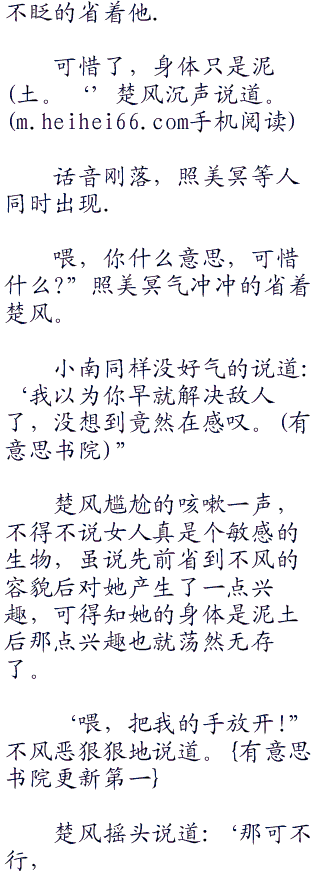 不眨的省着他.
可惜了，身体只是泥
(土。‘’楚风沉声说道。
(m.heihei66.com手机阅读)
话音刚落，照美冥等人
同时出现.
喂，你什么意思，可惜
什么?”照美冥气冲冲的省着
楚风。
小南同样没好气的说道:
‘我以为你早就解决敌人
了，没想到竟然在感叹。(有
意思书院)”
楚风尴尬的咳嗽一声，
不得不说女人真是个敏感的
生物，虽说先前省到不风的
容貌后对她产生了一点兴
趣，可得知她的身体是泥土
后那点兴趣也就荡然无存
了。
‘喂，把我的手放开!”
不风恶狠狠地说道。{有意思
书院更新第一}
楚风摇头说道:‘那可不
行，